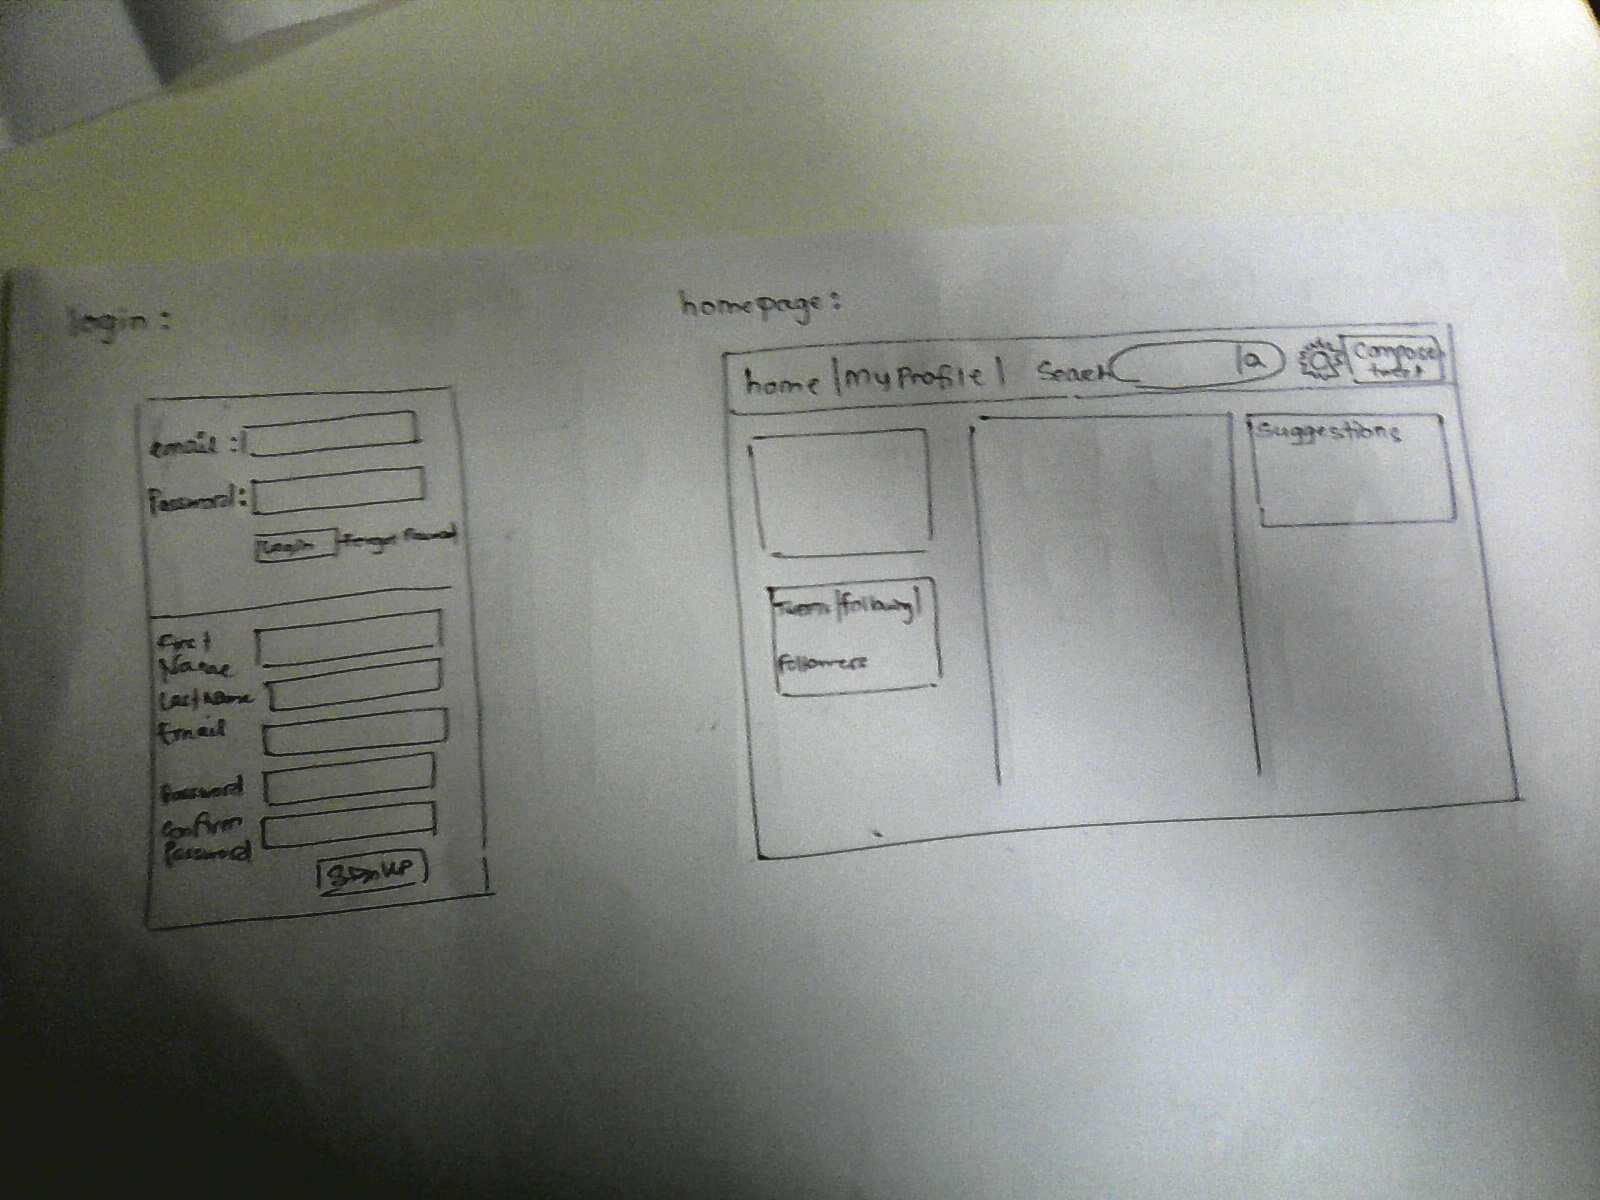 login:
email:
Password:
Login
First
Name
Last Name
Email
Password
Confirm
Password
Sign UP
homepage:
home | My Profile | Search
Compose
tweet
following |
followers
Suggestions